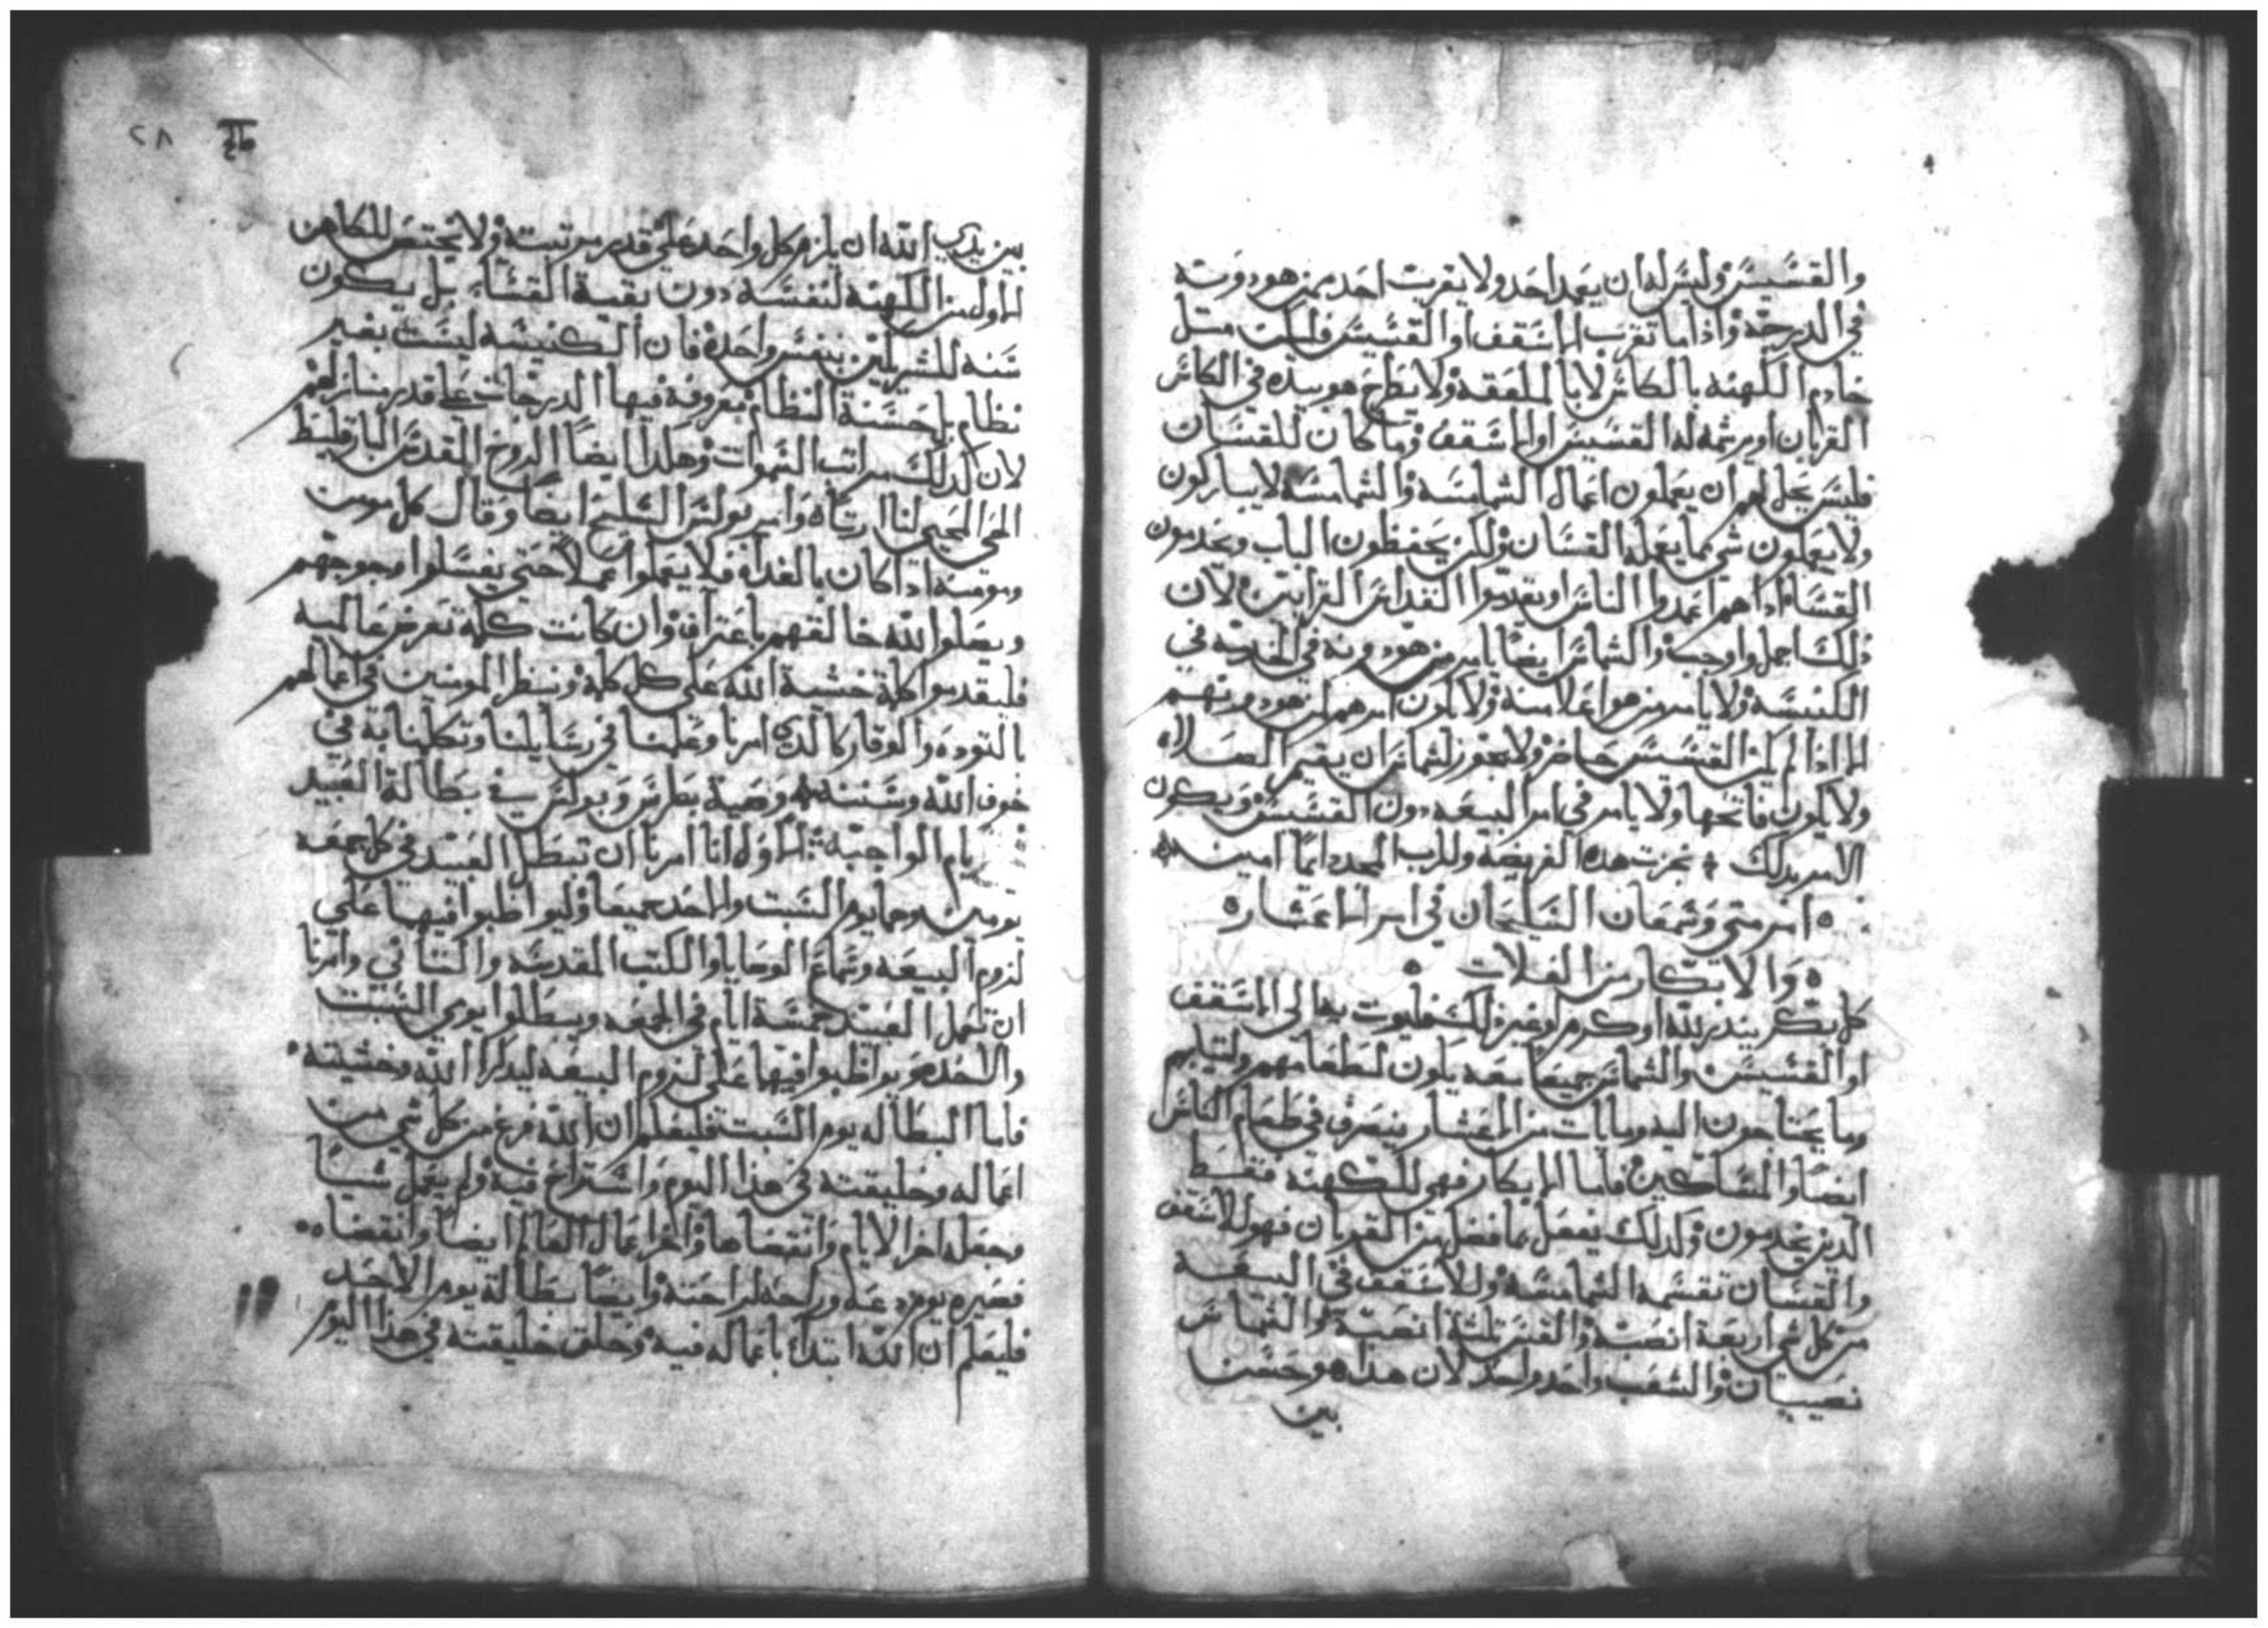 والقسيس وليس له ان يعمد احد ولا يقرب احد ممن هو دونه
في الدرجة واذا ما تقرب الاسقف او القسيس فليكن مثل
خادم الكهنة بالكاس لا بالملعقة ولا يطرح هو بيده في الكاس
القربان او يرشمه له القسيس او الاسقف وما كان للقسان
فليس يحل لهم ان يعملون اعمال الشمامسة والشمامسة لا يباركون
ولا يعملون شي مما يعمله القسان ولكن يحفظون الباب ويخدمون
القساء اذا هم اعمدوا الناس او يقدموا القداس القرابين لان
ذلك اجمل واوجب والشماس ايضا يامر من هو دونه في الخدمة في
الكنيسة ولا يامر من هو اعلا منه ولا يكون امرهم لمن هو دونهم
الا اذا لم يكن القسيس حاضر ولا يجوز لشماس ان يقيم الصلاه
ولا يكون فاتحها ولا يامر في امر البيعه دون القسيس ويكون
الامر بذلك نجزت هذه الفريضه وللرب المجد دايما امين
امر متي وشمعان السليحان في امر الاعشار
والابكار من الغلات
كل بكر ينذر لله او كرم او غير ذلك فليوت بها الى الاسقف
او القسيس والشماس جميعا معه يكون لطعامهم ولثيابهم
وما يحتاجون اليه وما يات من المعشار ينصرف في طعام الكاس
ايضا والمساكين فاما الابكار فهي للكهنة فقط
الذين يخدمون وكذلك يفعل بما فضل من القربان فهو للاسقف
والقسان تقسمه الشمامسة وللاسقف في البيعه
من كل شي اربعة انصبة والقس ثلثة انصبة والشماس
نصيبان والشعب واحد واحد لان هذا هو حسن
بين
٢٨
بين يدي الله ان يلزم كل واحد على قدر مرتبته ولا يختص للكاهن
الاول من الكهنة لنفسه دون بقية القساء بل يكون
سنه للشريكين بنفس واحدة فان الكنيسة ليست بغير
نظام بل حسنة النظام معروفة فيها الدرجات على قدر منازلهم
لان كذلك مراتب السموات وهكذا ايضا الروح المقدس البارقليط
الحي المحيي لنا ارتاه وامر بولس السليح ايضا وقال كل مومن
ومومنة اذا كان بالغداة فلا يعملوا عملا حتي يغسلوا وجوههم
ويصلوا لله خالقهم باعتراف وان كانت كلمة تعرض عالميه
فليقدموا كلمة خشية الله على كل كلمة ونسطر المومنين في اعمالهم
بالتوده والوقار كالذي امرنا وعلمنا في رسايلنا وتكلمنا به في
خوف الله وسننه وصية بطرس وبولس في بطالة العبيد
الايام الواجبة الاوله انا امرنا ان تبطل العبيد في كل جمعه
يومين وهما يوم السبت والاحد جميعا وليواظبوا فيها على
لزوم البيعه وسماع الوصايا والكتب المقدسه والتناني وامرنا
ان تعمل العبيد خمسة ايام في الجمعه ويبطلوا يومي السبت
والاحد ويواظبوا فيها على لزوم البيعه ليذكرا الله وخشيته
فاما البطاله يوم السبت فليعلم ان الله فرغ من كل شي من
اعماله وخليقته في هذا اليوم واستراح فيه ولم يعمل شيا
وجعله اخر الايام وانقضاها واخر اعمال العالم ايضا وانقضاه
فصيره يوم دعه وراحه لراحته وايضا بطالة يوم الاحد
فليعلم ان الله ابتدا باعماله فيه وخلق خليقته في هذا اليوم